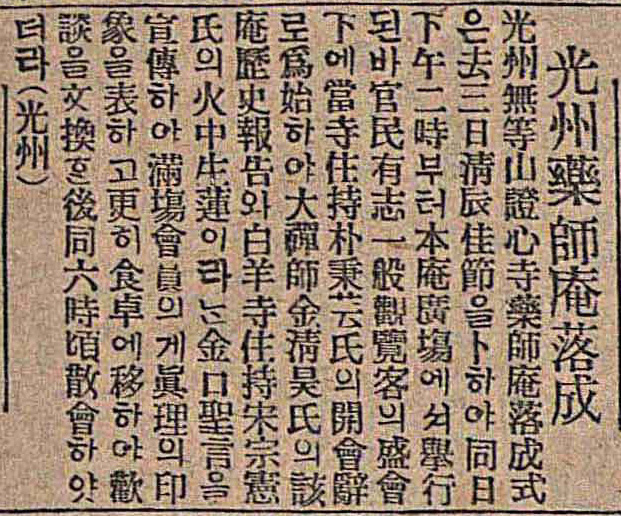 光州藥師庵落成
光州無等山證心寺藥師庵落成式
은去三日淸辰佳節을卜하야同日
下午二時부터本庵廣塲에셔擧行
된바官民有志一般觀覽客의盛會
下에當寺住持朴秉芸氏의開會辭
로爲始하야大禪師金淸昊氏의該
庵歷史報告와白羊寺住持宋宗憲
氏의火中生蓮이라는金口聖言을
宣傳하야滿塲會員의게眞理의印
象을表하고更히食卓에移하야歡
談을交換한後同六時頃散會하얏
더라(光州)